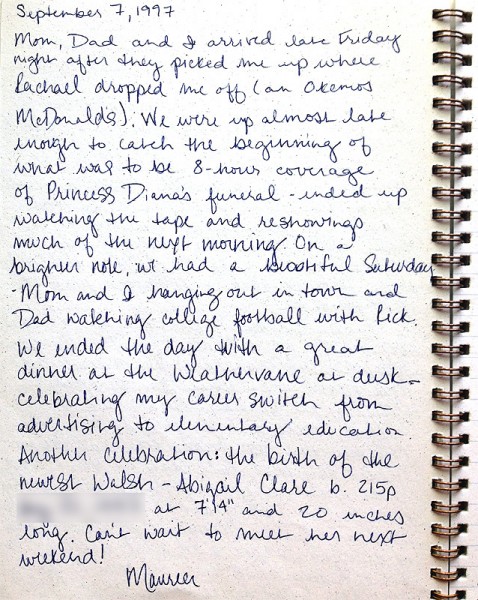 September 7, 1997
Mom, Dad and I arrived late Friday
night after they picked me up where
Rachael dropped me off (an Okemos
McDonald's). We were up almost late
enough to catch the beginning of
what was to be 8-hour coverage
of Princess Diana's funeral - ended up
watching the tape and reshowings
much of the next morning. On a
brighter note, we had a beautiful Saturday
- Mom and I hanging out in town and
Dad watching college football with Rick.
We ended the day with a great
dinner at the Weathervane at dusk -
celebrating my career switch from
advertising to elementary education.
Another celebration: the birth of the
newest Walsh - Abigail Clare b. 215p
at 7'14" and 20 inches
long. Can't wait to meet her next
weekend!
Maureen